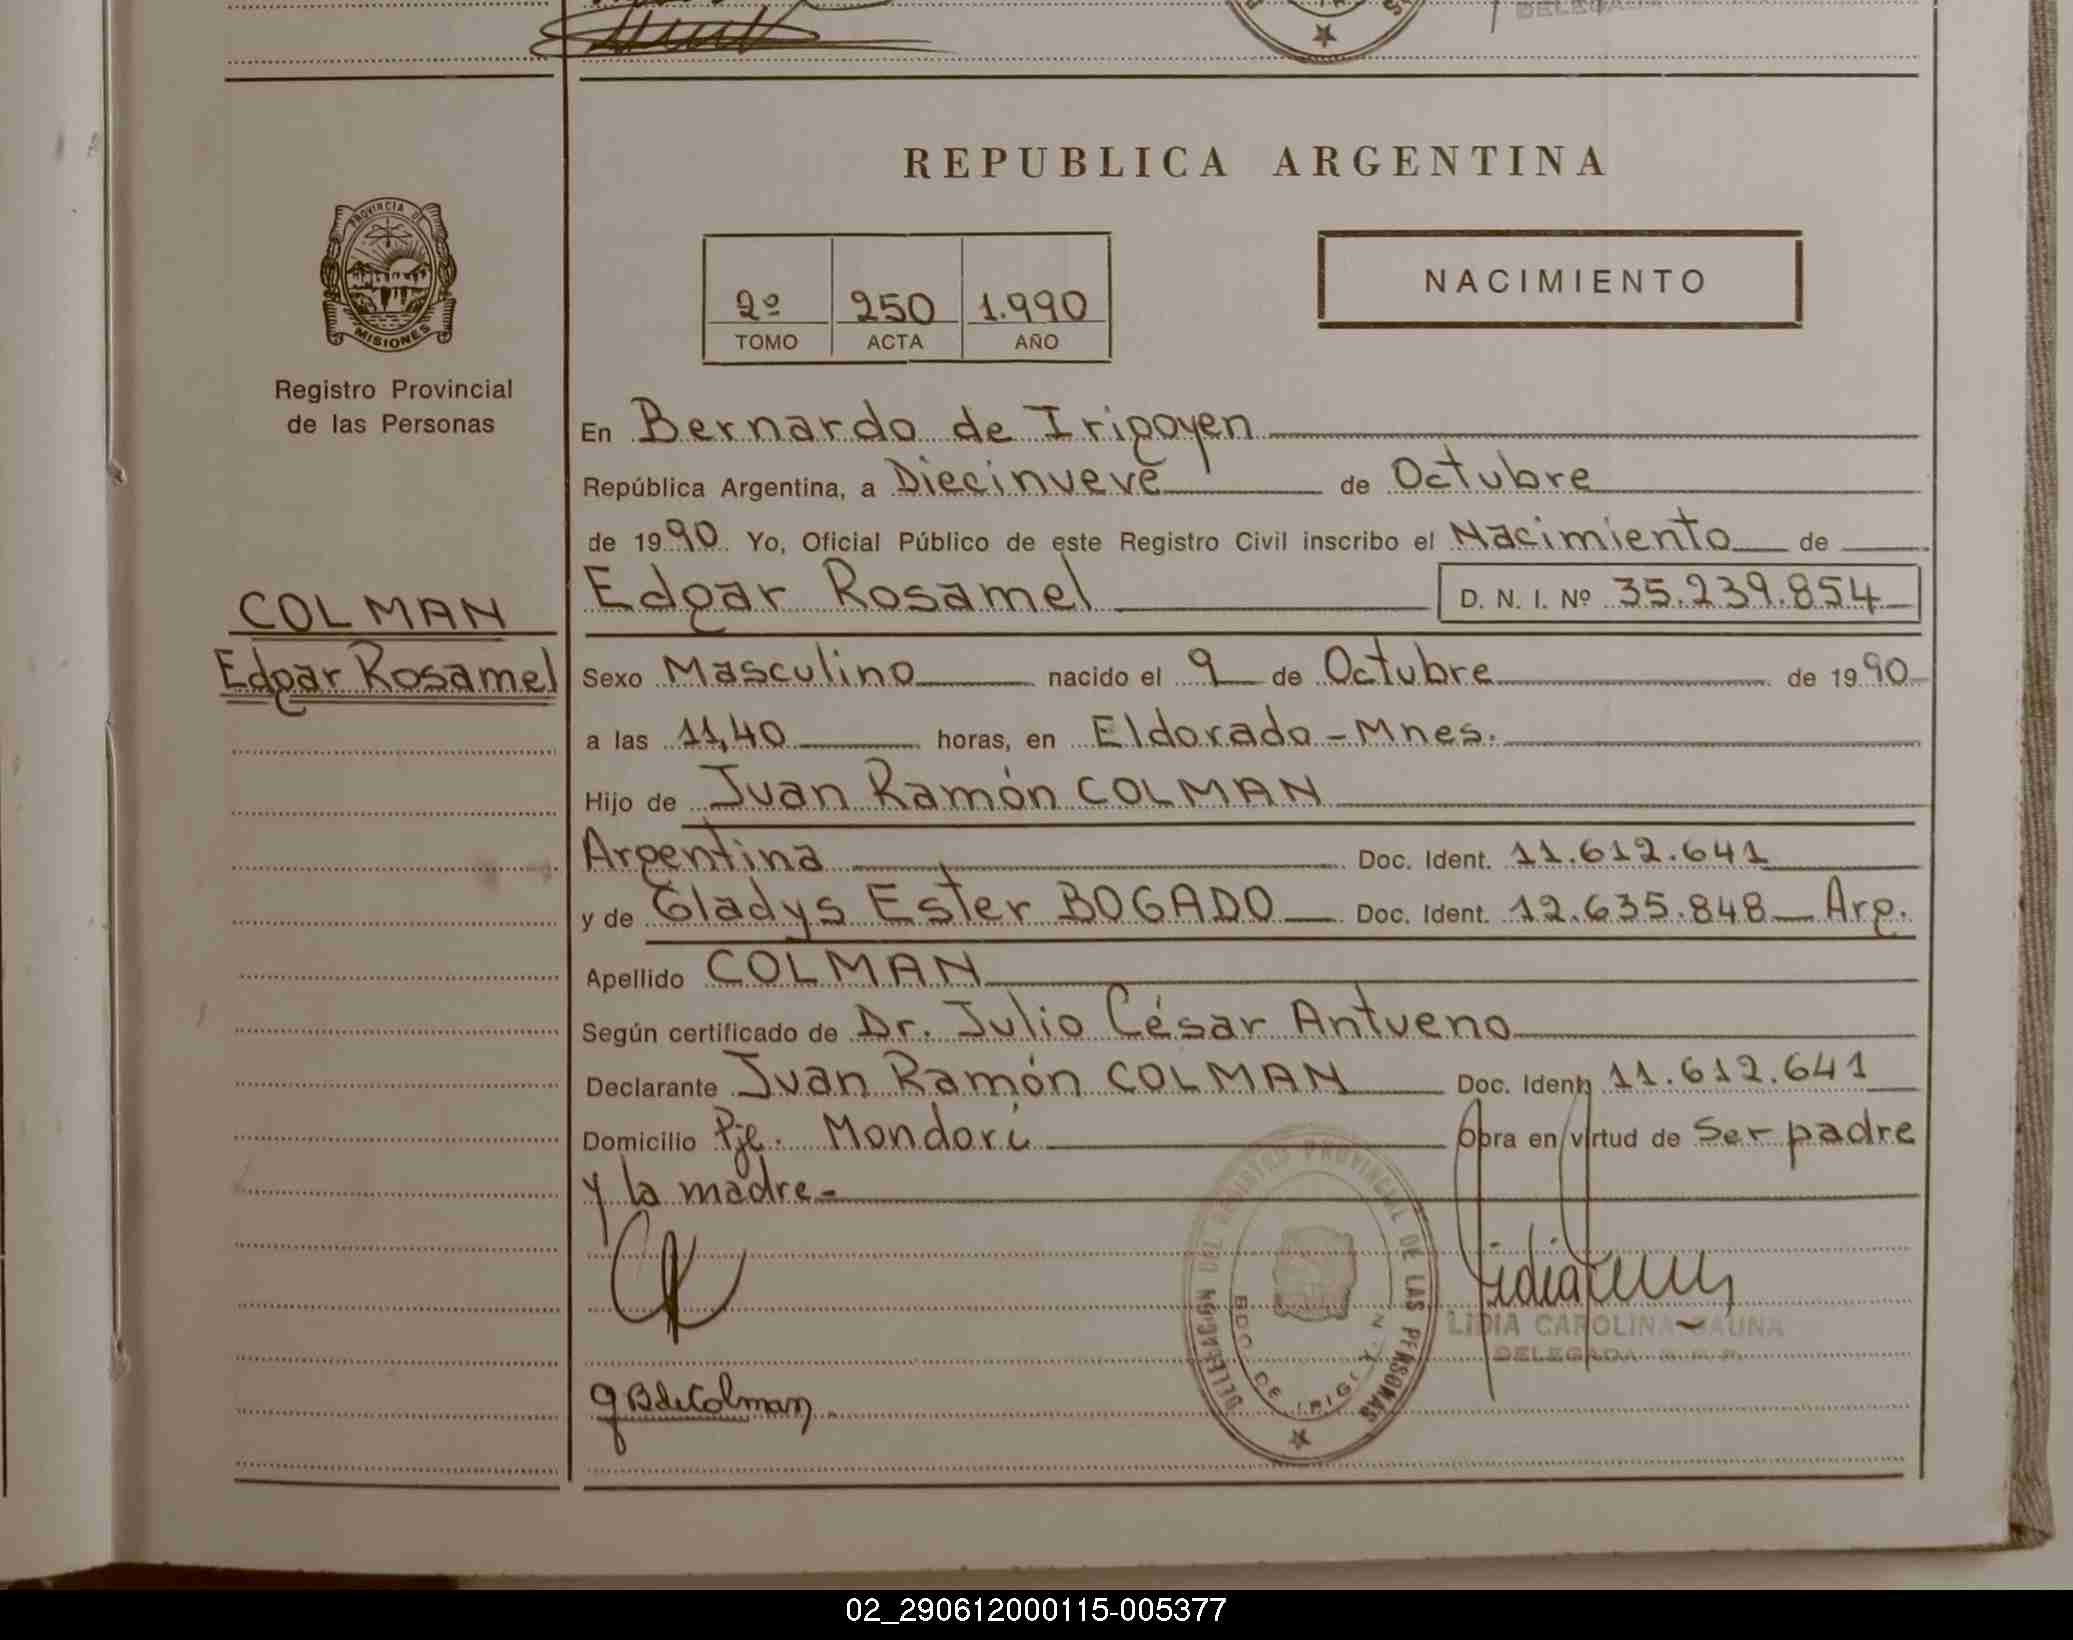 REPUBLICA ARGENTINA
PROVINCIA DE
MISIONES
Registro Provincial
de las Personas
2º 250 1.990
TOMO ACTA AÑO
NACIMIENTO
En Bernardo de Irigoyen
República Argentina, a Diecinueve de Octubre
de 1990 Yo, Oficial Público de este Registro Civil inscribo el Nacimiento de
Edgar Rosamel D. N. I. Nº 35.239.854
COLMAN
Edgar Rosamel
Sexo Masculino nacido el 9 de Octubre de 1990
a las 11,40 horas, en Eldorado - Mnes.
Hijo de Juan Ramón COLMAN
Argentina Doc. Ident. 11.612.641
y de Gladys Ester BOGADO Doc. Ident. 12.635.848 Arg.
Apellido COLMAN
Según certificado de Dr. Julio César Antueno
Declarante Juan Ramón COLMAN Doc. Ident. 11.612.641
Domicilio Pje. Mondorí Obra en virtud de Ser padre
y la madre-
DELEGACION DEL REGISTRO PROVINCIAL DE LAS PERSONAS
BDO. DE IRIGOYEN
LIDIA CAROLINA
DELEGADA
GB de Colman
02_290612000115-005377